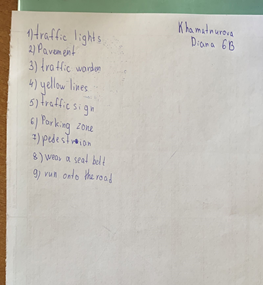 Khamatnurova
Diana 6B
1) traffic lights
2) Pavement
3) traffic warden
4) yellow lines
5) traffic sign
6) Parking zone
7) pedestrian
8) wear a seat belt
9) run onto the road